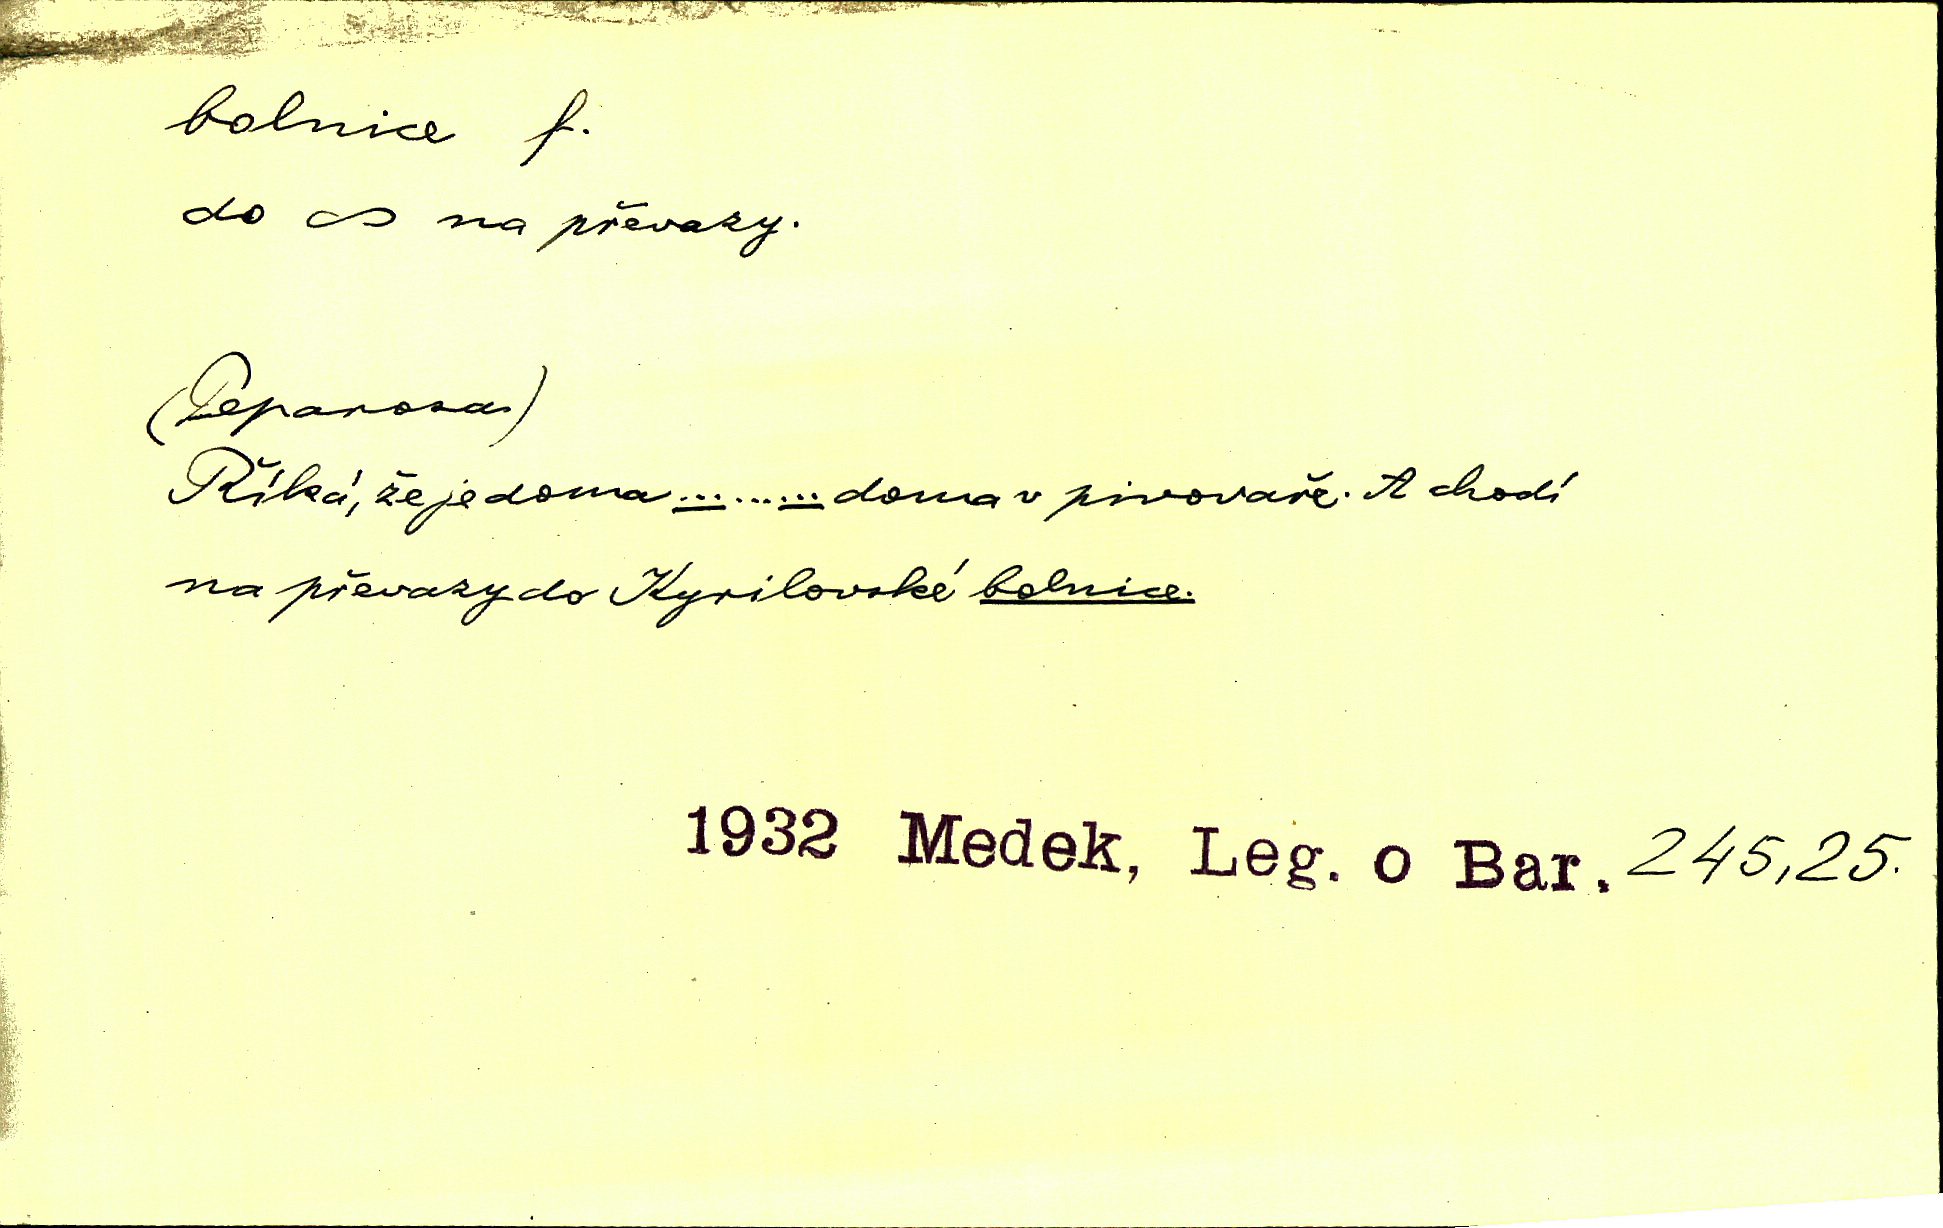 bolnice f.
do ∞ na převazy.
(Peparosa)
Říká, že je doma ......... doma v pivovaře. A chodí
na převazy do Kyrilovské bolnice.
1932 Medek, Leg. o Bar. 245,25.